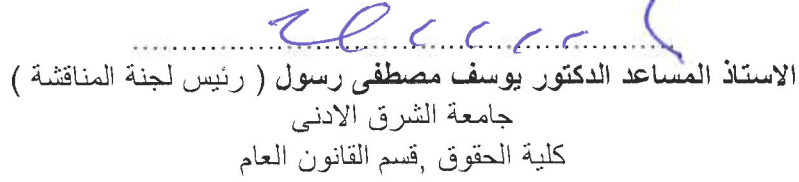 الاستاذ المساعد الدكتور يوسف مصطفى رسول ( رئيس لجنة المناقشة )
جامعة الشرق الادنى
كلية الحقوق ,قسم القانون العام